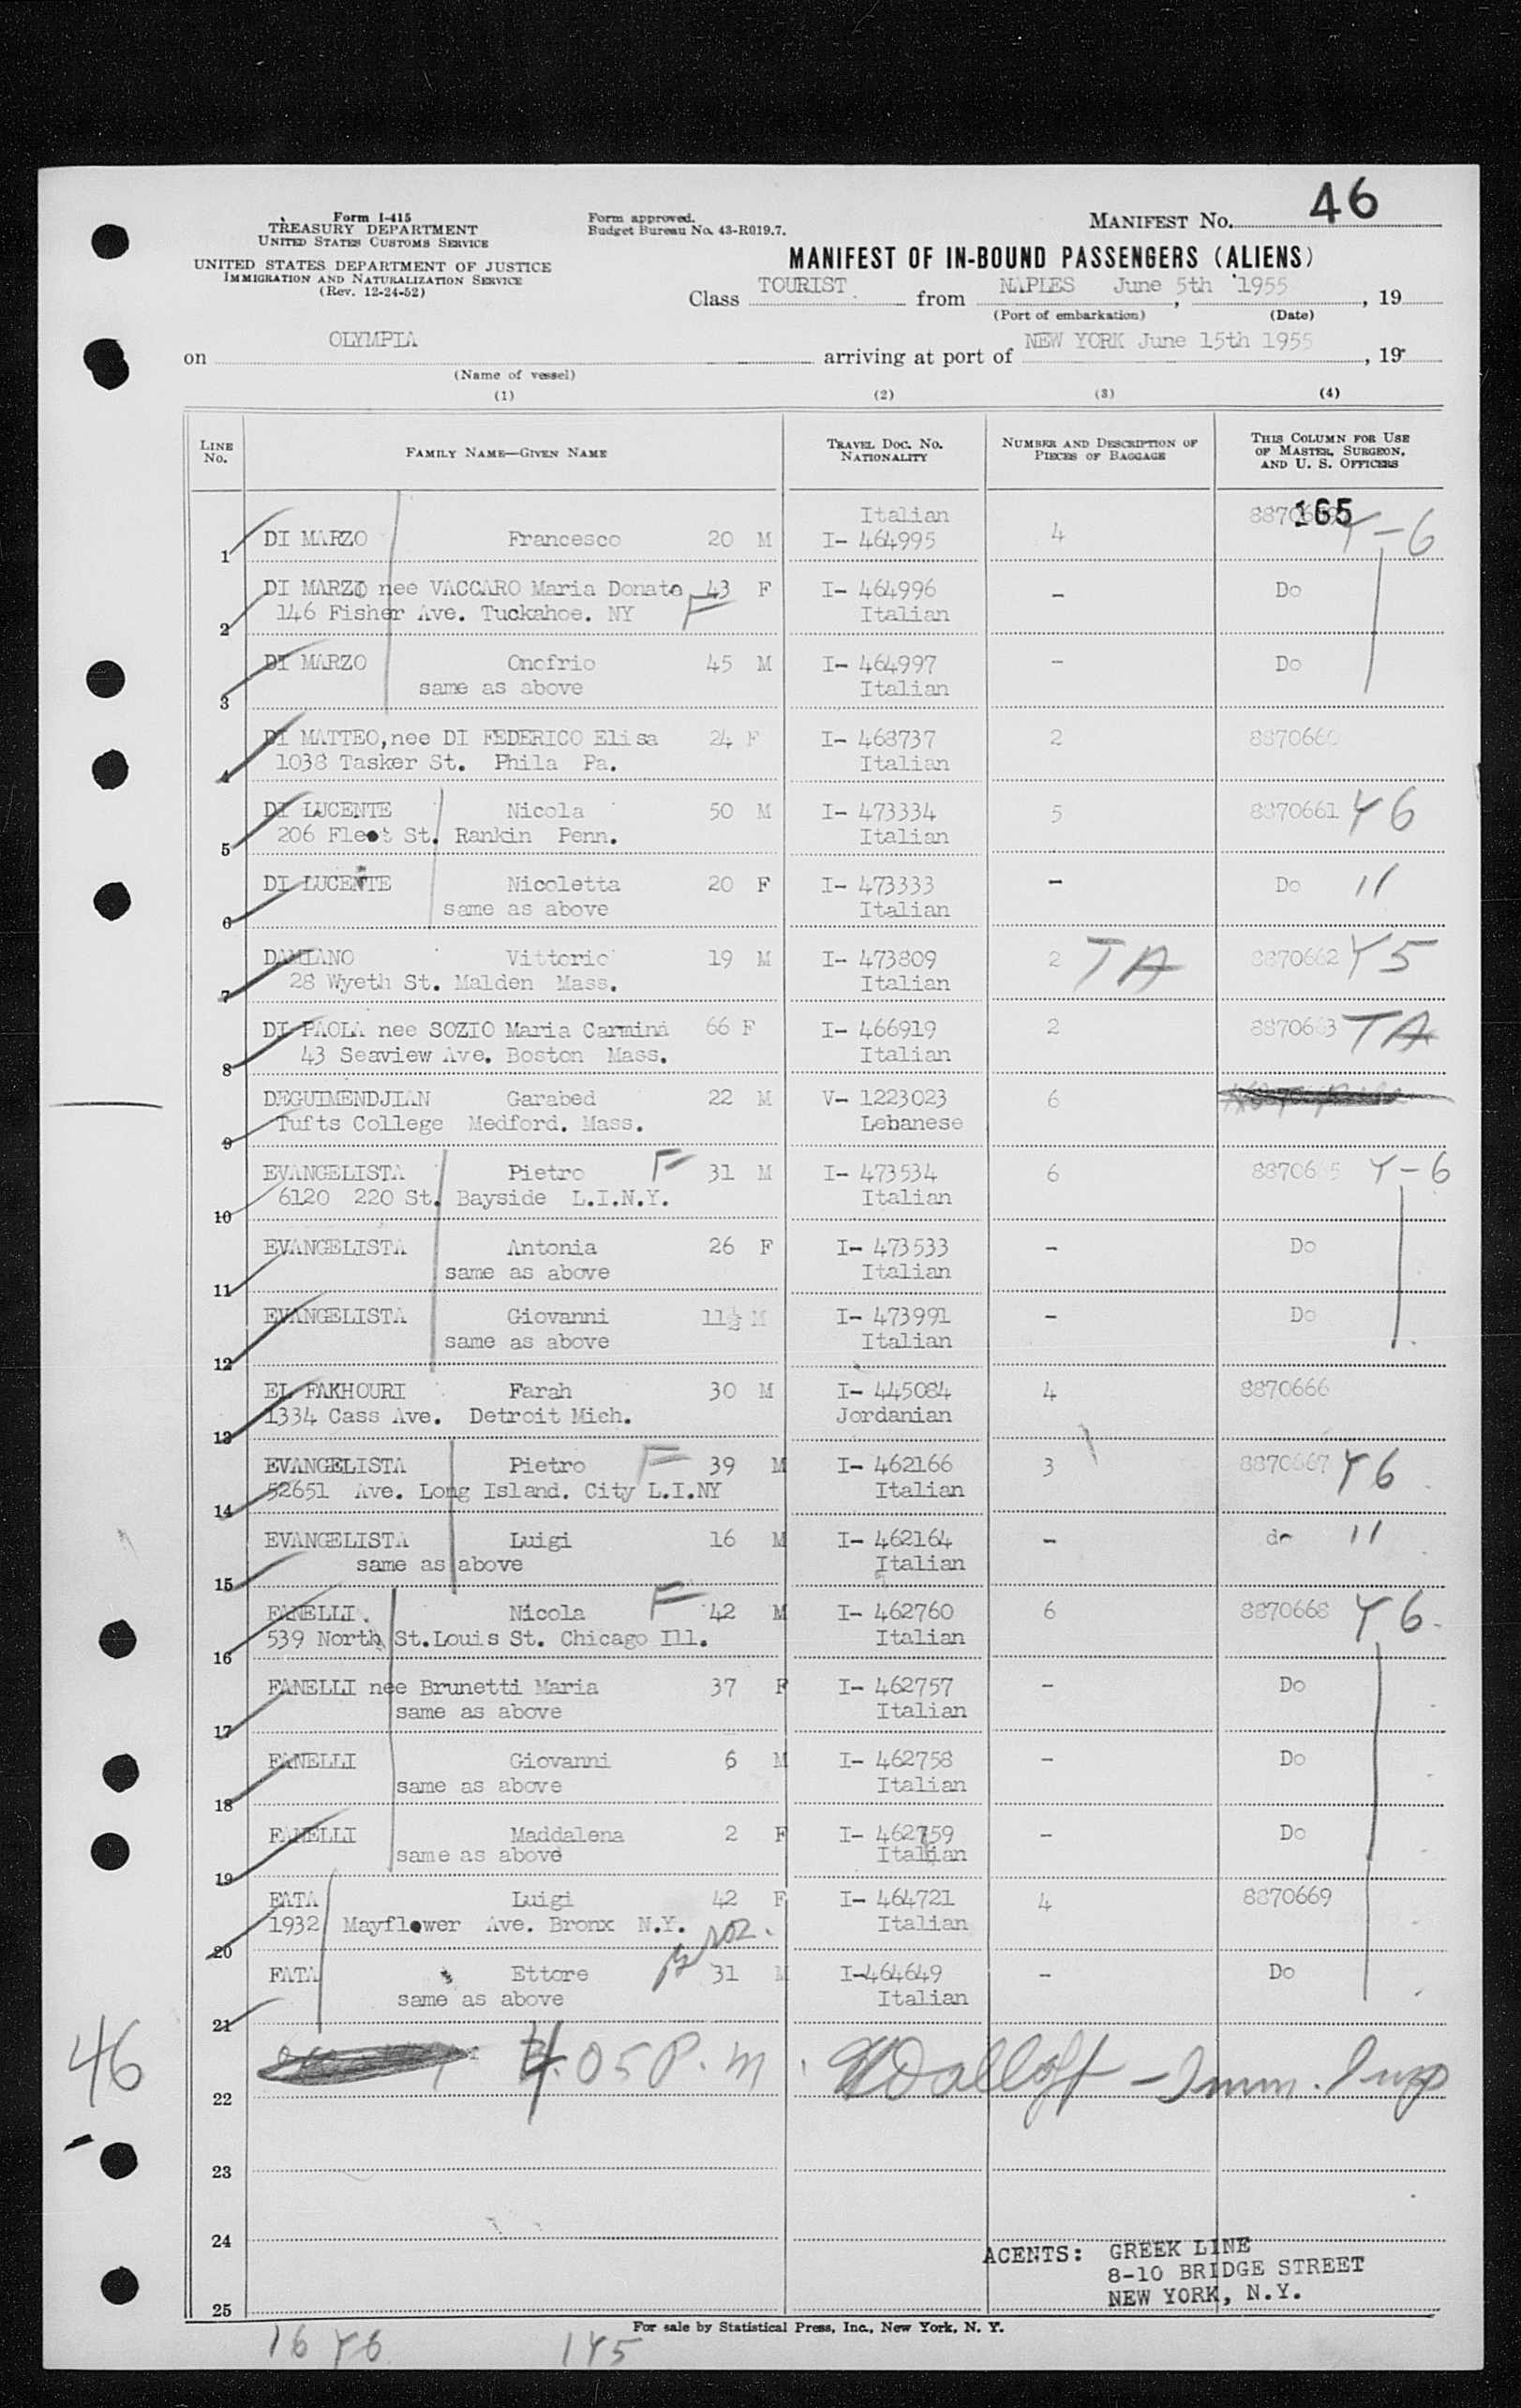 Form I-415
TREASURY DEPARTMENT
UNITED STATES CUSTOMS SERVICE
UNITED STATES DEPARTMENT OF JUSTICE
IMMIGRATION AND NATURALIZATION SERVICE
(Rev. 12-24-52)
Form approved.
Budget Bureau No. 43-R019.7.
MANIFEST No. 46
MANIFEST OF IN-BOUND PASSENGERS (ALIENS)
Class TOURIST from NAPLES June 5th 1955, 19
(Port of embarkation) (Date)
on OLYMPIA arriving at port of NEW YORK June 15th 1955, 19
(Name of vessel)
(1) (2) (3) (4)
LINE No. FAMILY NAME—GIVEN NAME TRAVEL DOC. No. NATIONALITY NUMBER AND DESCRIPTION OF PIECES OF BAGGAGE THIS COLUMN FOR USE OF MASTER, SURGEON, AND U. S. OFFICERS
Italian 165
1 DI MARZO Francesco 20 M I- 464995 4 Y-6
DI MARZO nee VACCARO Maria Donato 43 F I- 464996 - Do
2 146 Fisher Ave. Tuckahoe. NY F Italian
DI MARZO Onofrio 45 M I- 464997 - Do
3 same as above Italian
DI MATTEO,nee DI FEDERICO Elisa 24 F I- 468737 2 8870660
4 1038 Tasker St. Phila Pa. Italian
DI LUCENTE Nicola 50 M I- 473334 5 8870661 Y6
5 206 Fleet St. Rankin Penn. Italian
DI LUCENTE Nicoletta 20 F I- 473333 - Do 11
6 same as above Italian
DAMIANO Vittorio 19 M I- 473809 2 TA 8870662 Y5
7 28 Wyeth St. Malden Mass. Italian
DI PAOLA nee SOZIO Maria Carmina 66 F I- 466919 2 8870663 TA
8 43 Seaview Ave. Boston Mass. Italian
DEGUIMENDJIAN Garabed 22 M V- 1223023 6
9 Tufts College Medford. Mass. Lebanese
EVANGELISTA Pietro F 31 M I- 473534 6 Y-6
10 6120 220 St. Bayside L.I.N.Y. Italian
EVANGELISTA Antonia 26 F I- 473533 - Do
11 same as above Italian
EVANGELISTA Giovanni 11½ M I- 473991 - Do
12 same as above Italian
EL FAKHOURI Farah 30 M I- 445084 4 8870666
13 1334 Cass Ave. Detroit Mich. Jordanian
EVANGELISTA Pietro F 39 M I- 462166 3 8870667 Y6
14 52651 Ave. Long Island. City L.I.NY Italian
EVANGELISTA Luigi 16 M I- 462164 - do 11
15 same as above Italian
FANELLI. Nicola F 42 M I- 462760 6 8870668 Y6
16 539 North St.Louis St. Chicago Ill. Italian
FANELLI nee Brunetti Maria 37 F I- 462757 - Do
17 same as above Italian
FANELLI Giovanni 6 M I- 462758 - Do
18 same as above Italian
FANELLI Maddalena 2 F I- 462759 - Do
19 same as above Italian
FATA Luigi 42 F I- 464721 4 8870669
20 1932 Mayflower Ave. Bronx N.Y. Italian
FATA Ettore 31 M I-464649 - Do
21 same as above Italian
46
22 4.05 P.m. - Imm. Insp
23
24
AGENTS: GREEK LINE
8-10 BRIDGE STREET
NEW YORK, N.Y.
25
For sale by Statistical Press, Inc., New York, N. Y.
16 Y6 1Y5